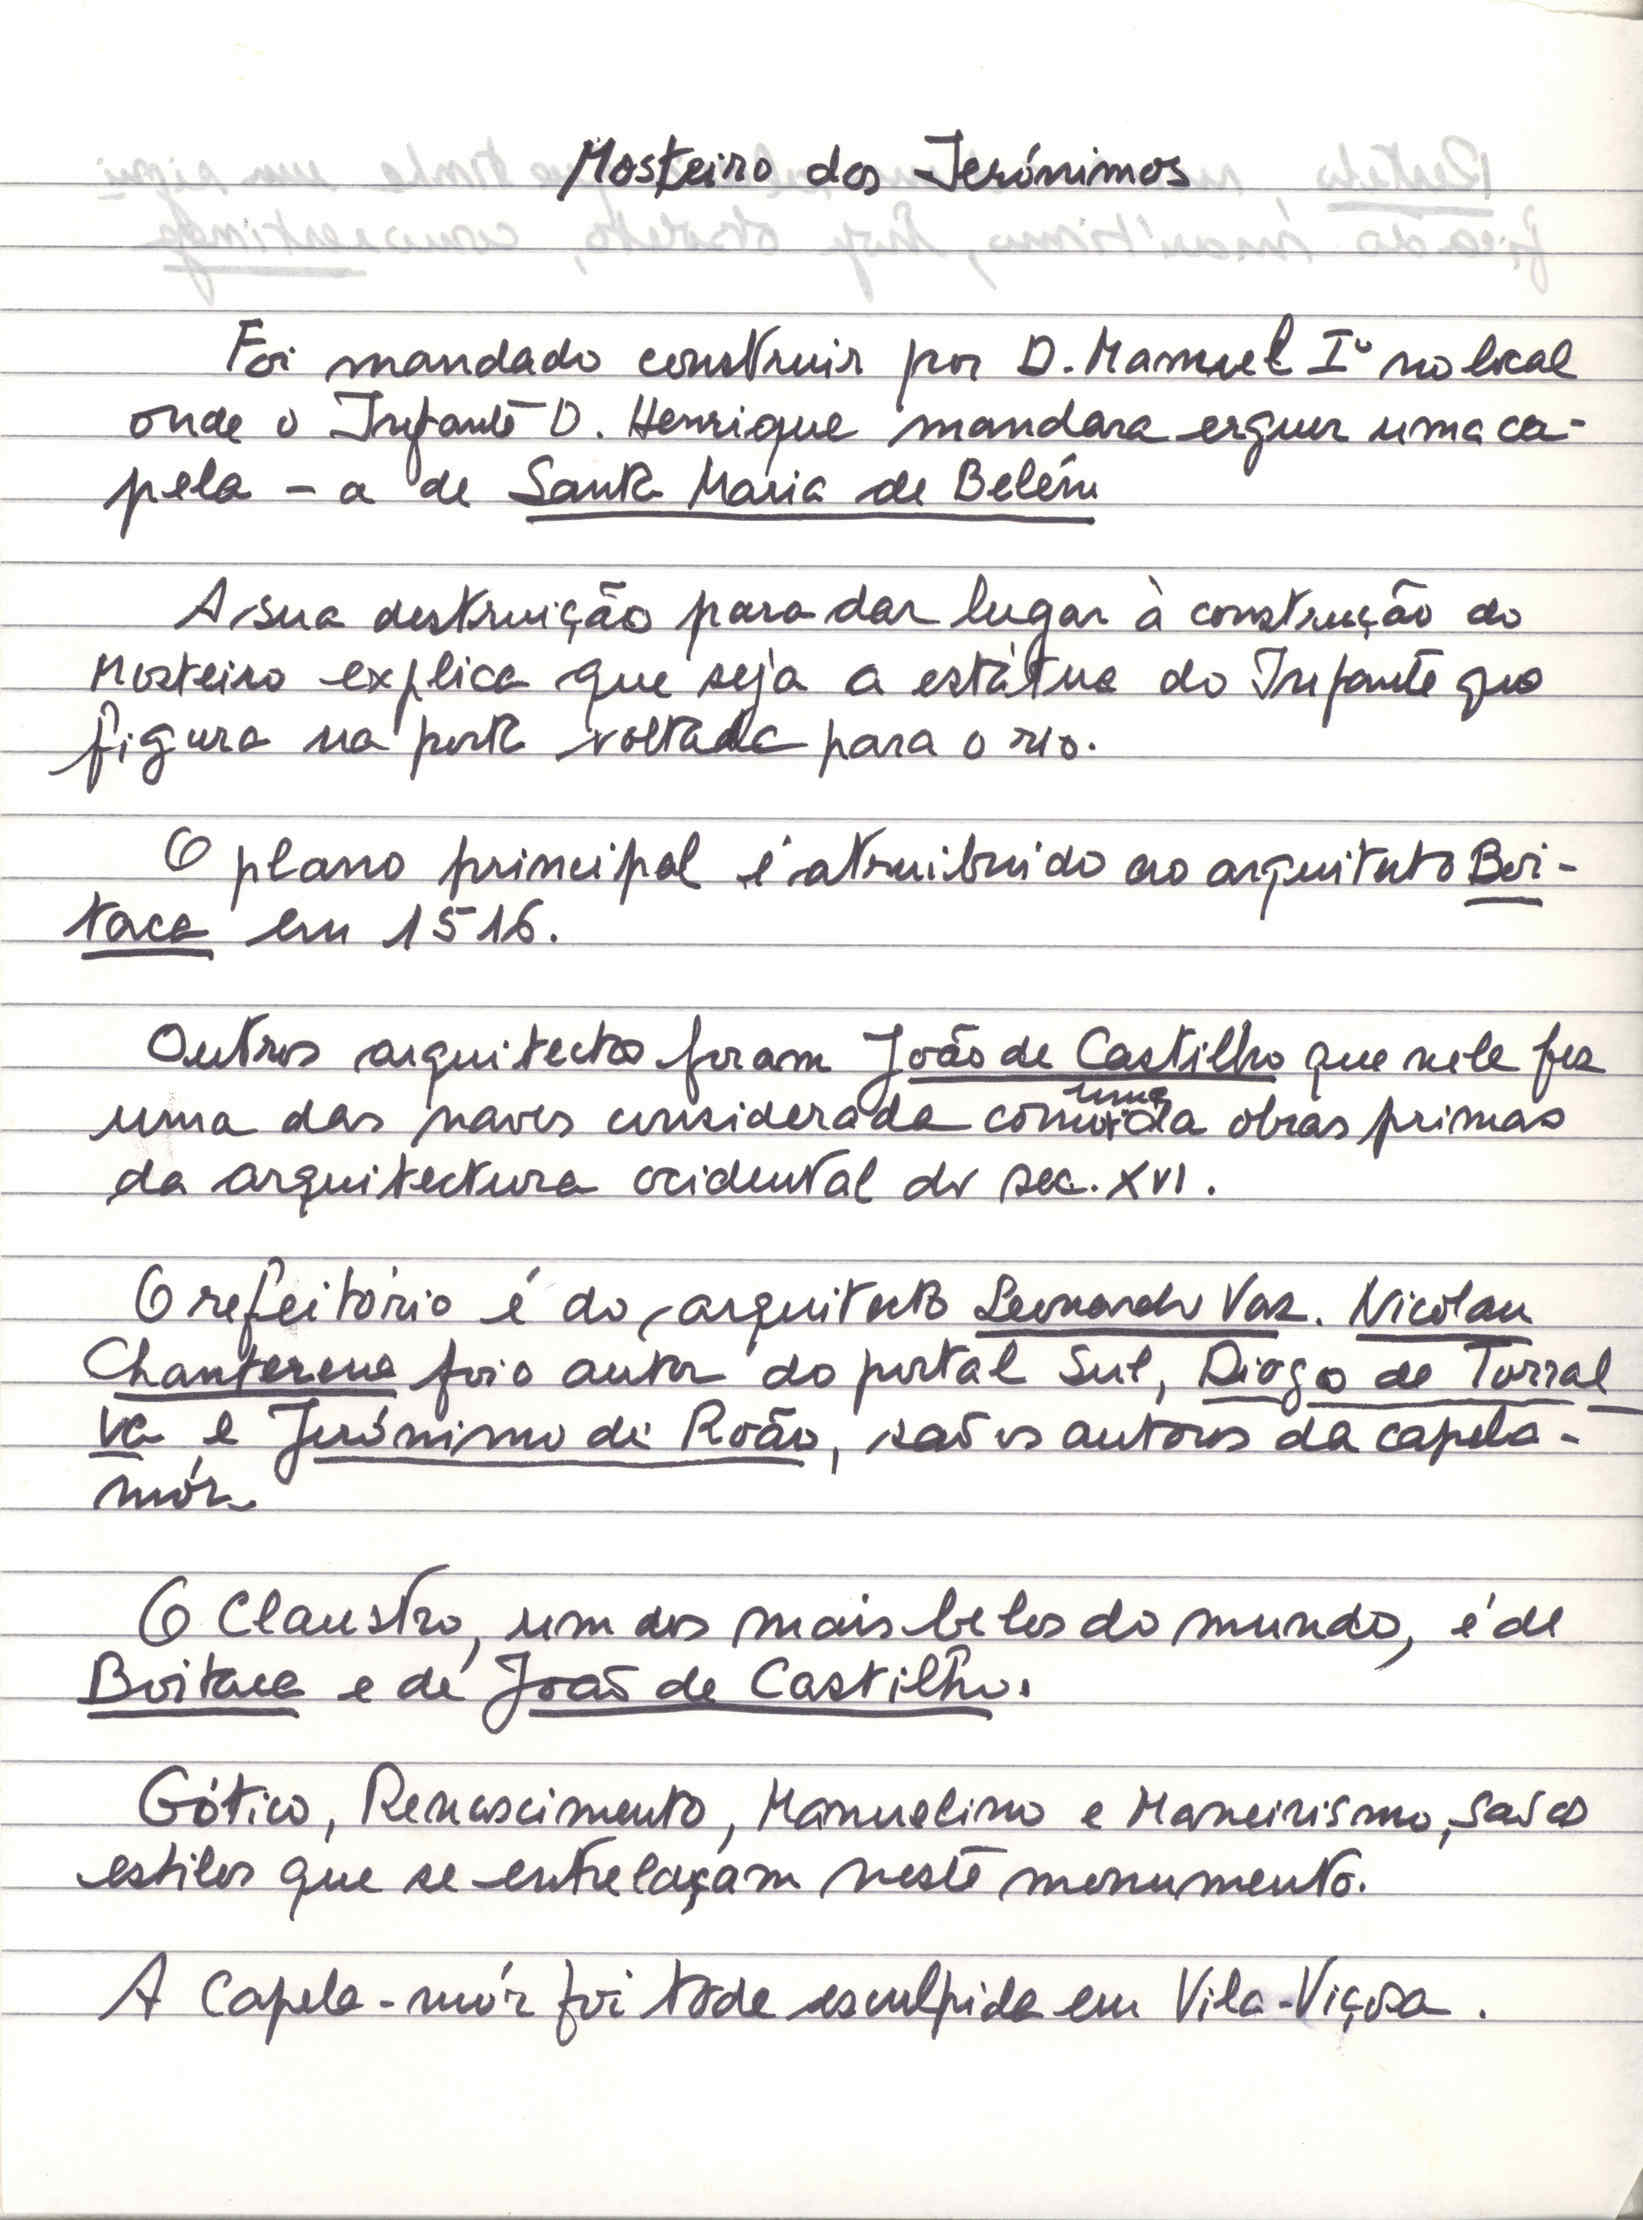 Mosteiro dos Jerónimos
Foi mandado construir por D. Manuel Iº no local
onde o Infante D. Henrique mandara erguer uma ca-
pela - a de Santa Maria de Belém
A sua destruição para dar lugar à construção do
Mosteiro explica que seja a estátua do Infante que
figura na porta voltada para o rio.
O plano principal é atribuido ao arquitecto Boi-
taca em 1516.
Outros arquitectos foram João de Castilho que nele fez
uma das naves considerada como uma da obras primas
da arquitectura ocidental do sec. XVI.
O refeitório é do arquitecto Leonardo Vaz. Nicolau
Chanterene foi o autor do portal Sul, Diogo de Torral
va e Jerónimo de Roão, são os autores da capela-
mór.
O Claustro, um dos mais belos do mundo, é de
Boitaca e de João de Castilho.
Gótico, Renascimento, Manuelino e Maneirismo, são os
estilos que se entrelaçam neste monumento.
A Capela-mór foi toda esculpida em Vila-Viçosa.